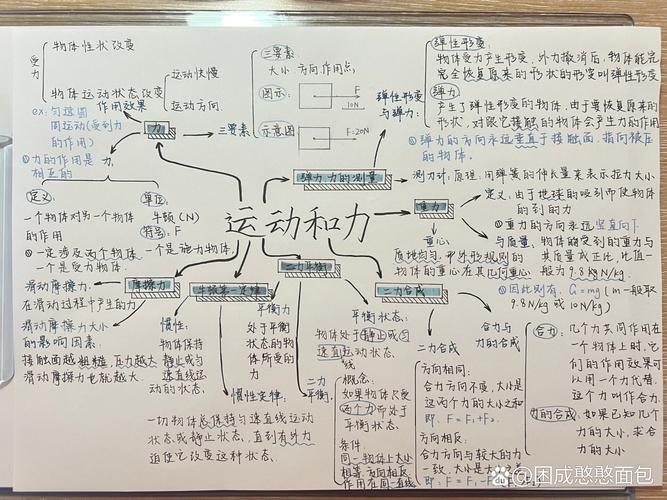 物体性状改变
受力
物体运动状态改变
运动快慢
运动方向
作用效果
ex: 匀速圆
周运动(受到力
的作用)
②力的作用是
相互的
力
三要素
三要素:
大小、方向、作用点
图示:
F
10N
示意图
F=20N
定义:
一个物体对另一个物体
的作用
单位:
牛顿(N)
符号: F
①一定涉及两个物体
一个是施力物体,
一个是受力物体.
运动和力
弹力、力的测量
弹性形变
与弹力:
弹性形变:
物体受力产生形变,外力撤消后,物体能完
完全恢复原来的形状的形变叫弹性形变
弹力
产生了弹性形变的物体,由于要恢复原来的
形状,对跟它接触的物体会产生力的作用
①弹力的方向永远垂直于接触面,指向被压
的物体.
测力计:原理:用弹簧的伸长量来表示拉力大小
重力
定义:由于地球的吸引而使物体
的到的力
①重力的方向永远竖直向下
与质量:物体的受到的重力与
其质量成正比,比值一
般为9.8N/kg
②因此则有: G=mg(m一般取
9.8N/kg 或 10N/kg)
重心
质地均匀、形外形规则的
物体的重心在其几何重心
摩擦力
滑动摩擦力:
在滑动过程中产生的力
滑动摩擦力大小
的影响因素:
接触面越粗糙,压力越大
滑动摩擦力也就越大.
牛顿第一定律
惯性:
物体保持
静止或匀
速直线运
动的状态.
惯性定律:
一切物体总保持匀速直线运动
状态或静止状态,直到有外力
迫使它改变这种状态.
二力平衡
平衡力
处于平衡
状态的物
体所受的
力
平衡状态:
物体处于静止或匀
速直线运动状态.
二力
平衡:
概念:
如果物体只受
两个力而处于
平衡状态
条件:
同一物体上大小
相等、方向相反
作用在同一直线
二力合成
二力合成
方向相同:
合力方向不变,大小是
这两个力的大小之和
即: F=F₁+F₂.
方向相反:
合力方向与较大的力
一致,大小是大
即: F=F₁-F
合力与
力的合成
合力:
几个力共同作用在
一个物体上时,它
们的作用效果可
以用一个力代替.
这个力叫作合力.
力的合成:
如果已知几个
力的大小,求合
力的大小
Bai百度 @困成憨憨面包